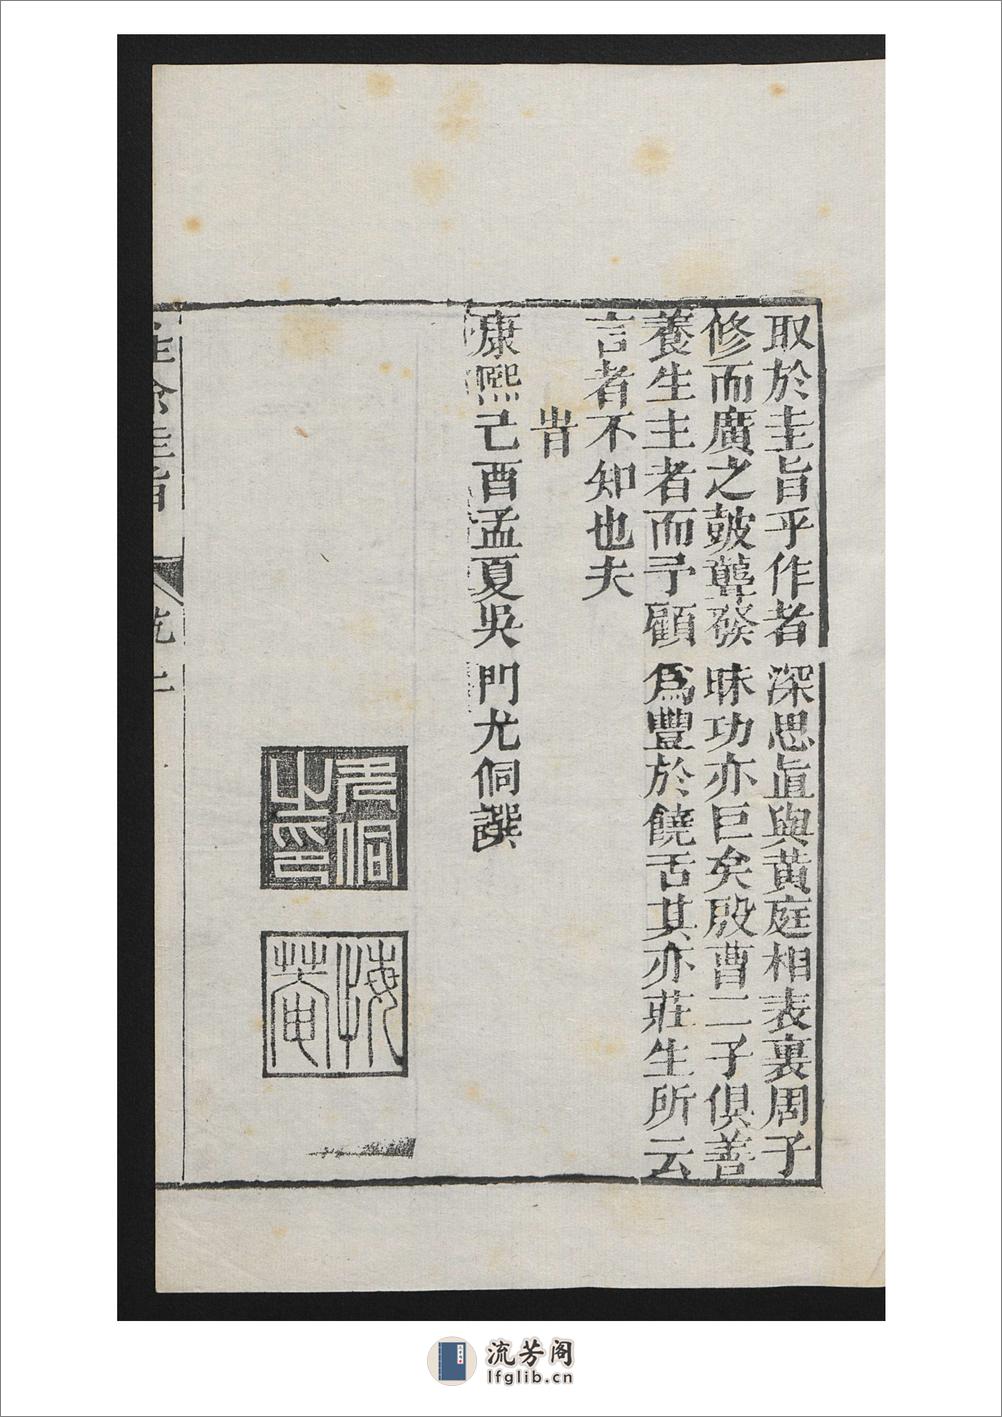 取於圭旨乎作者深思眞與黃庭相表裏周子
修而廣之皷聾發昧功亦巨矣殷曹二子俱善
養生主者而予顧爲豐於饒舌其亦莊生所云
言者不知也夫
旹
康熙己酉孟夏吳門尤侗譔
尤侗之印
悔菴
性命圭旨
流芳阁
lfglib.cn